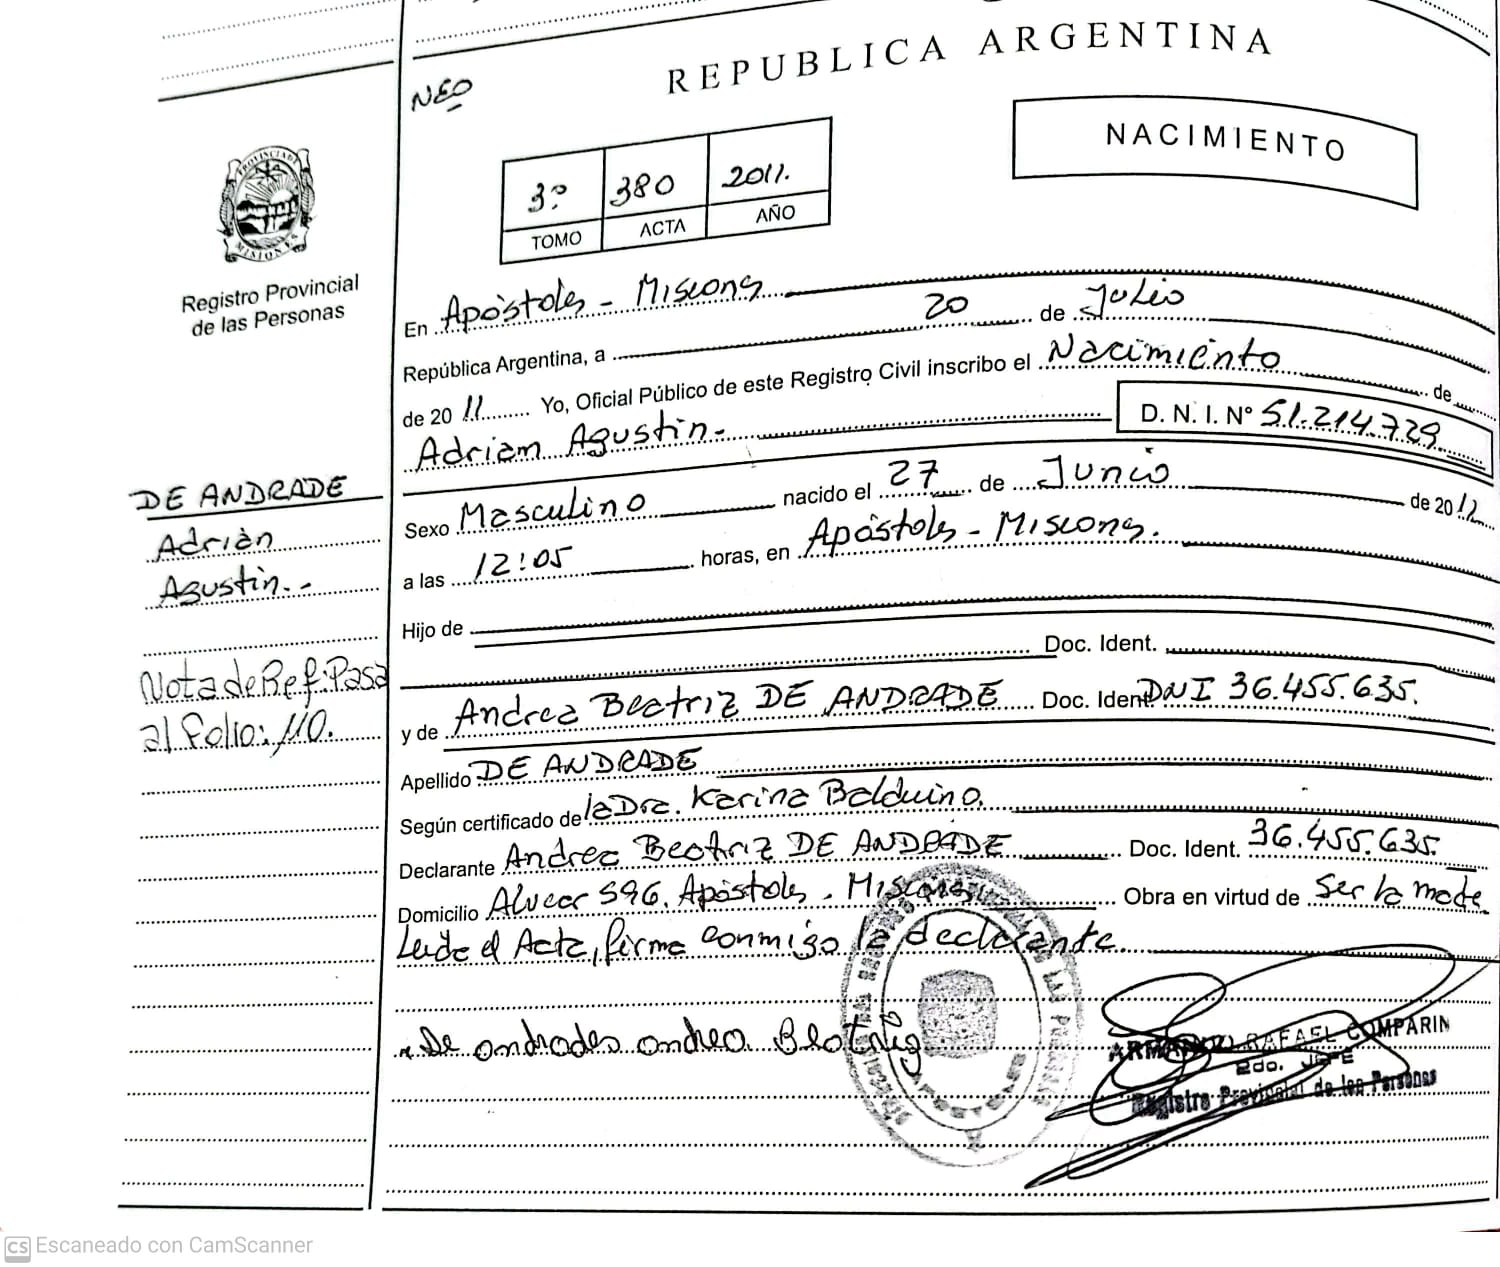 REPUBLICA ARGENTINA
NEO
NACIMIENTO
3º 380 2011.
TOMO ACTA AÑO
PROVINCIA DE
MISIONES
Registro Provincial
de las Personas
En Apóstoles - Misiones
República Argentina, a 20 de Julio
de 20 11 Yo, Oficial Público de este Registro Civil inscribo el Nacimiento de
Adrian Agustin.- D. N. I. Nº 51.214.729
DE ANDRADE
Adrián
Agustin.-
Sexo Masculino nacido el 27 de Junio de 2011
a las 12:05 horas, en Apóstoles - Misiones.
Hijo de
Doc. Ident.
Nota de Ref: Pasa
al folio: 110.
y de Andrea Beatriz DE ANDRADE Doc. Ident DNI 36.455.635.
Apellido DE ANDRADE
Según certificado de la Dra. Karina Balduino.
Declarante Andrea Beatriz DE ANDRADE Doc. Ident. 36.455.635.
Domicilio Alvear 596. Apóstoles. Misiones. Obra en virtud de Ser la madre
Leida el Acta, firma conmigo la declarante.
De andrades andrea Beatriz
RAFAEL COMPARIN
2do. JEFE
Registro Provincial de las Personas
CS Escaneado con CamScanner